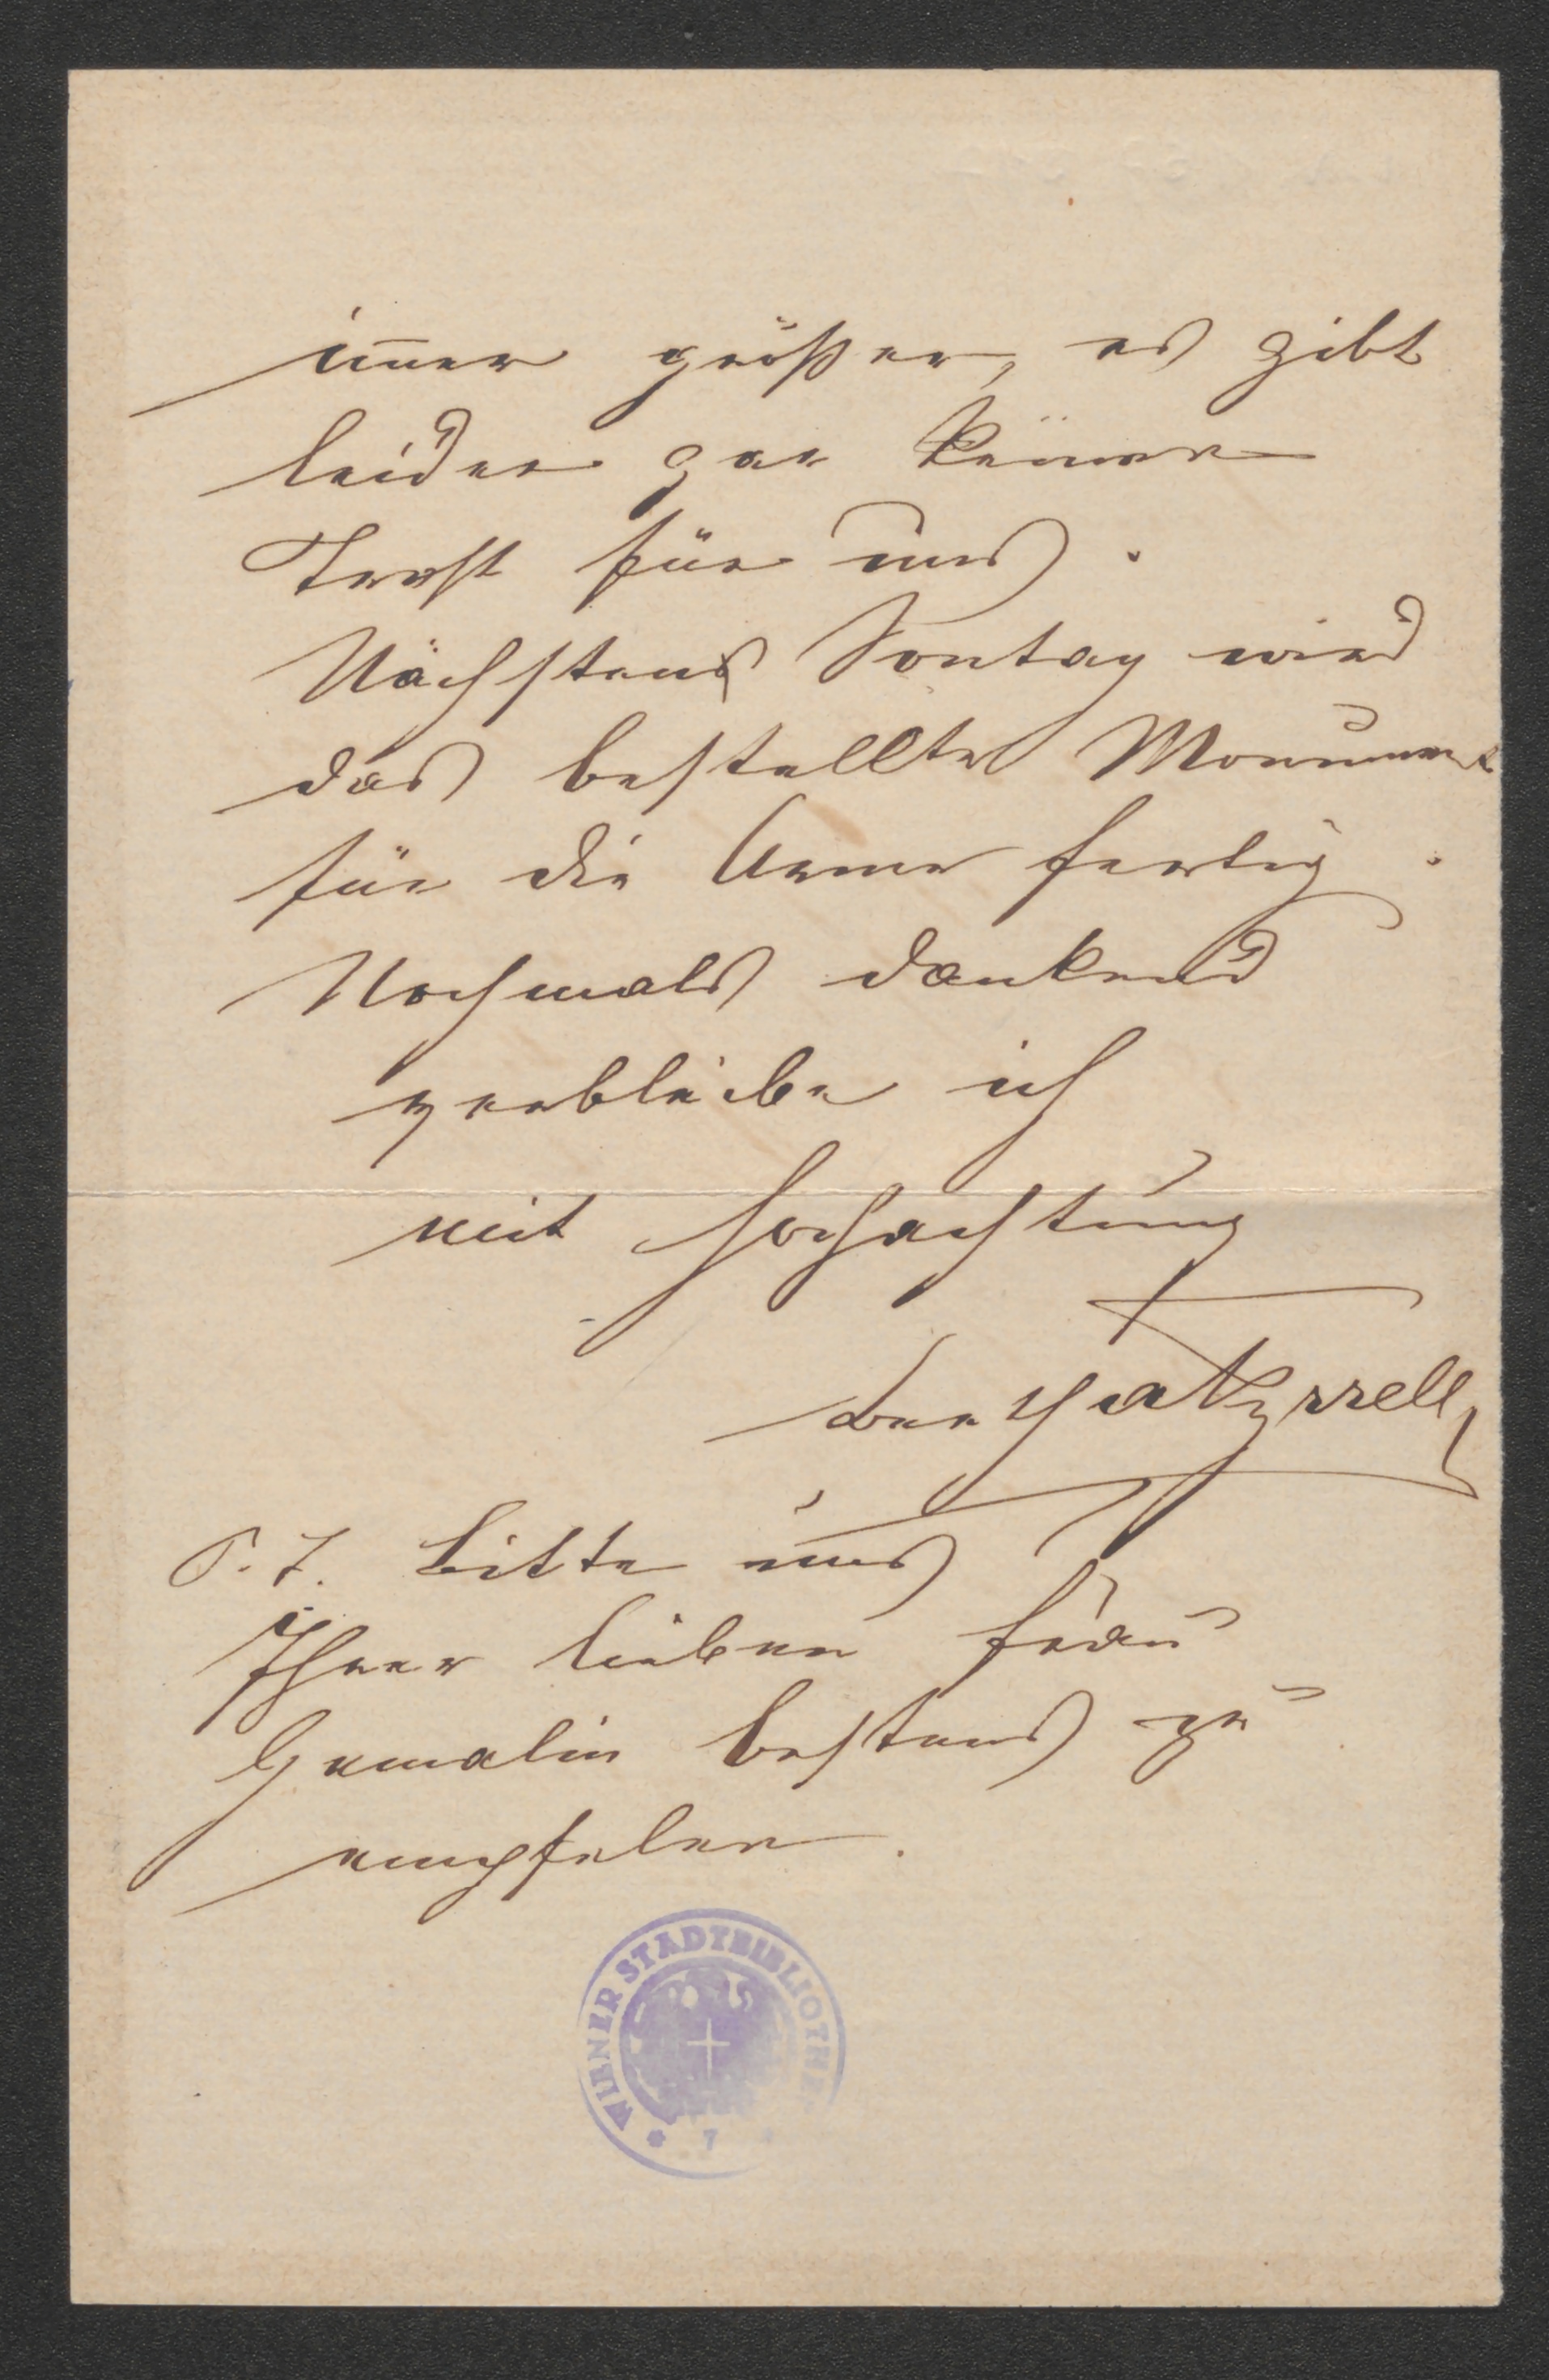 im̄er größer, es gibt
leider gar keinen
Trost für uns.
Nächstens Sontag wird
das bestellte Monument
für die Arme fertig.
Nochmals dankend
verbleibe ich
mit Hochachtung
P. S. Bitte uns
Ihrer lieben Frau
Gemalin bestens zu
empfelen.
WIENER STADTBIBLIOTHEK
* 7 *